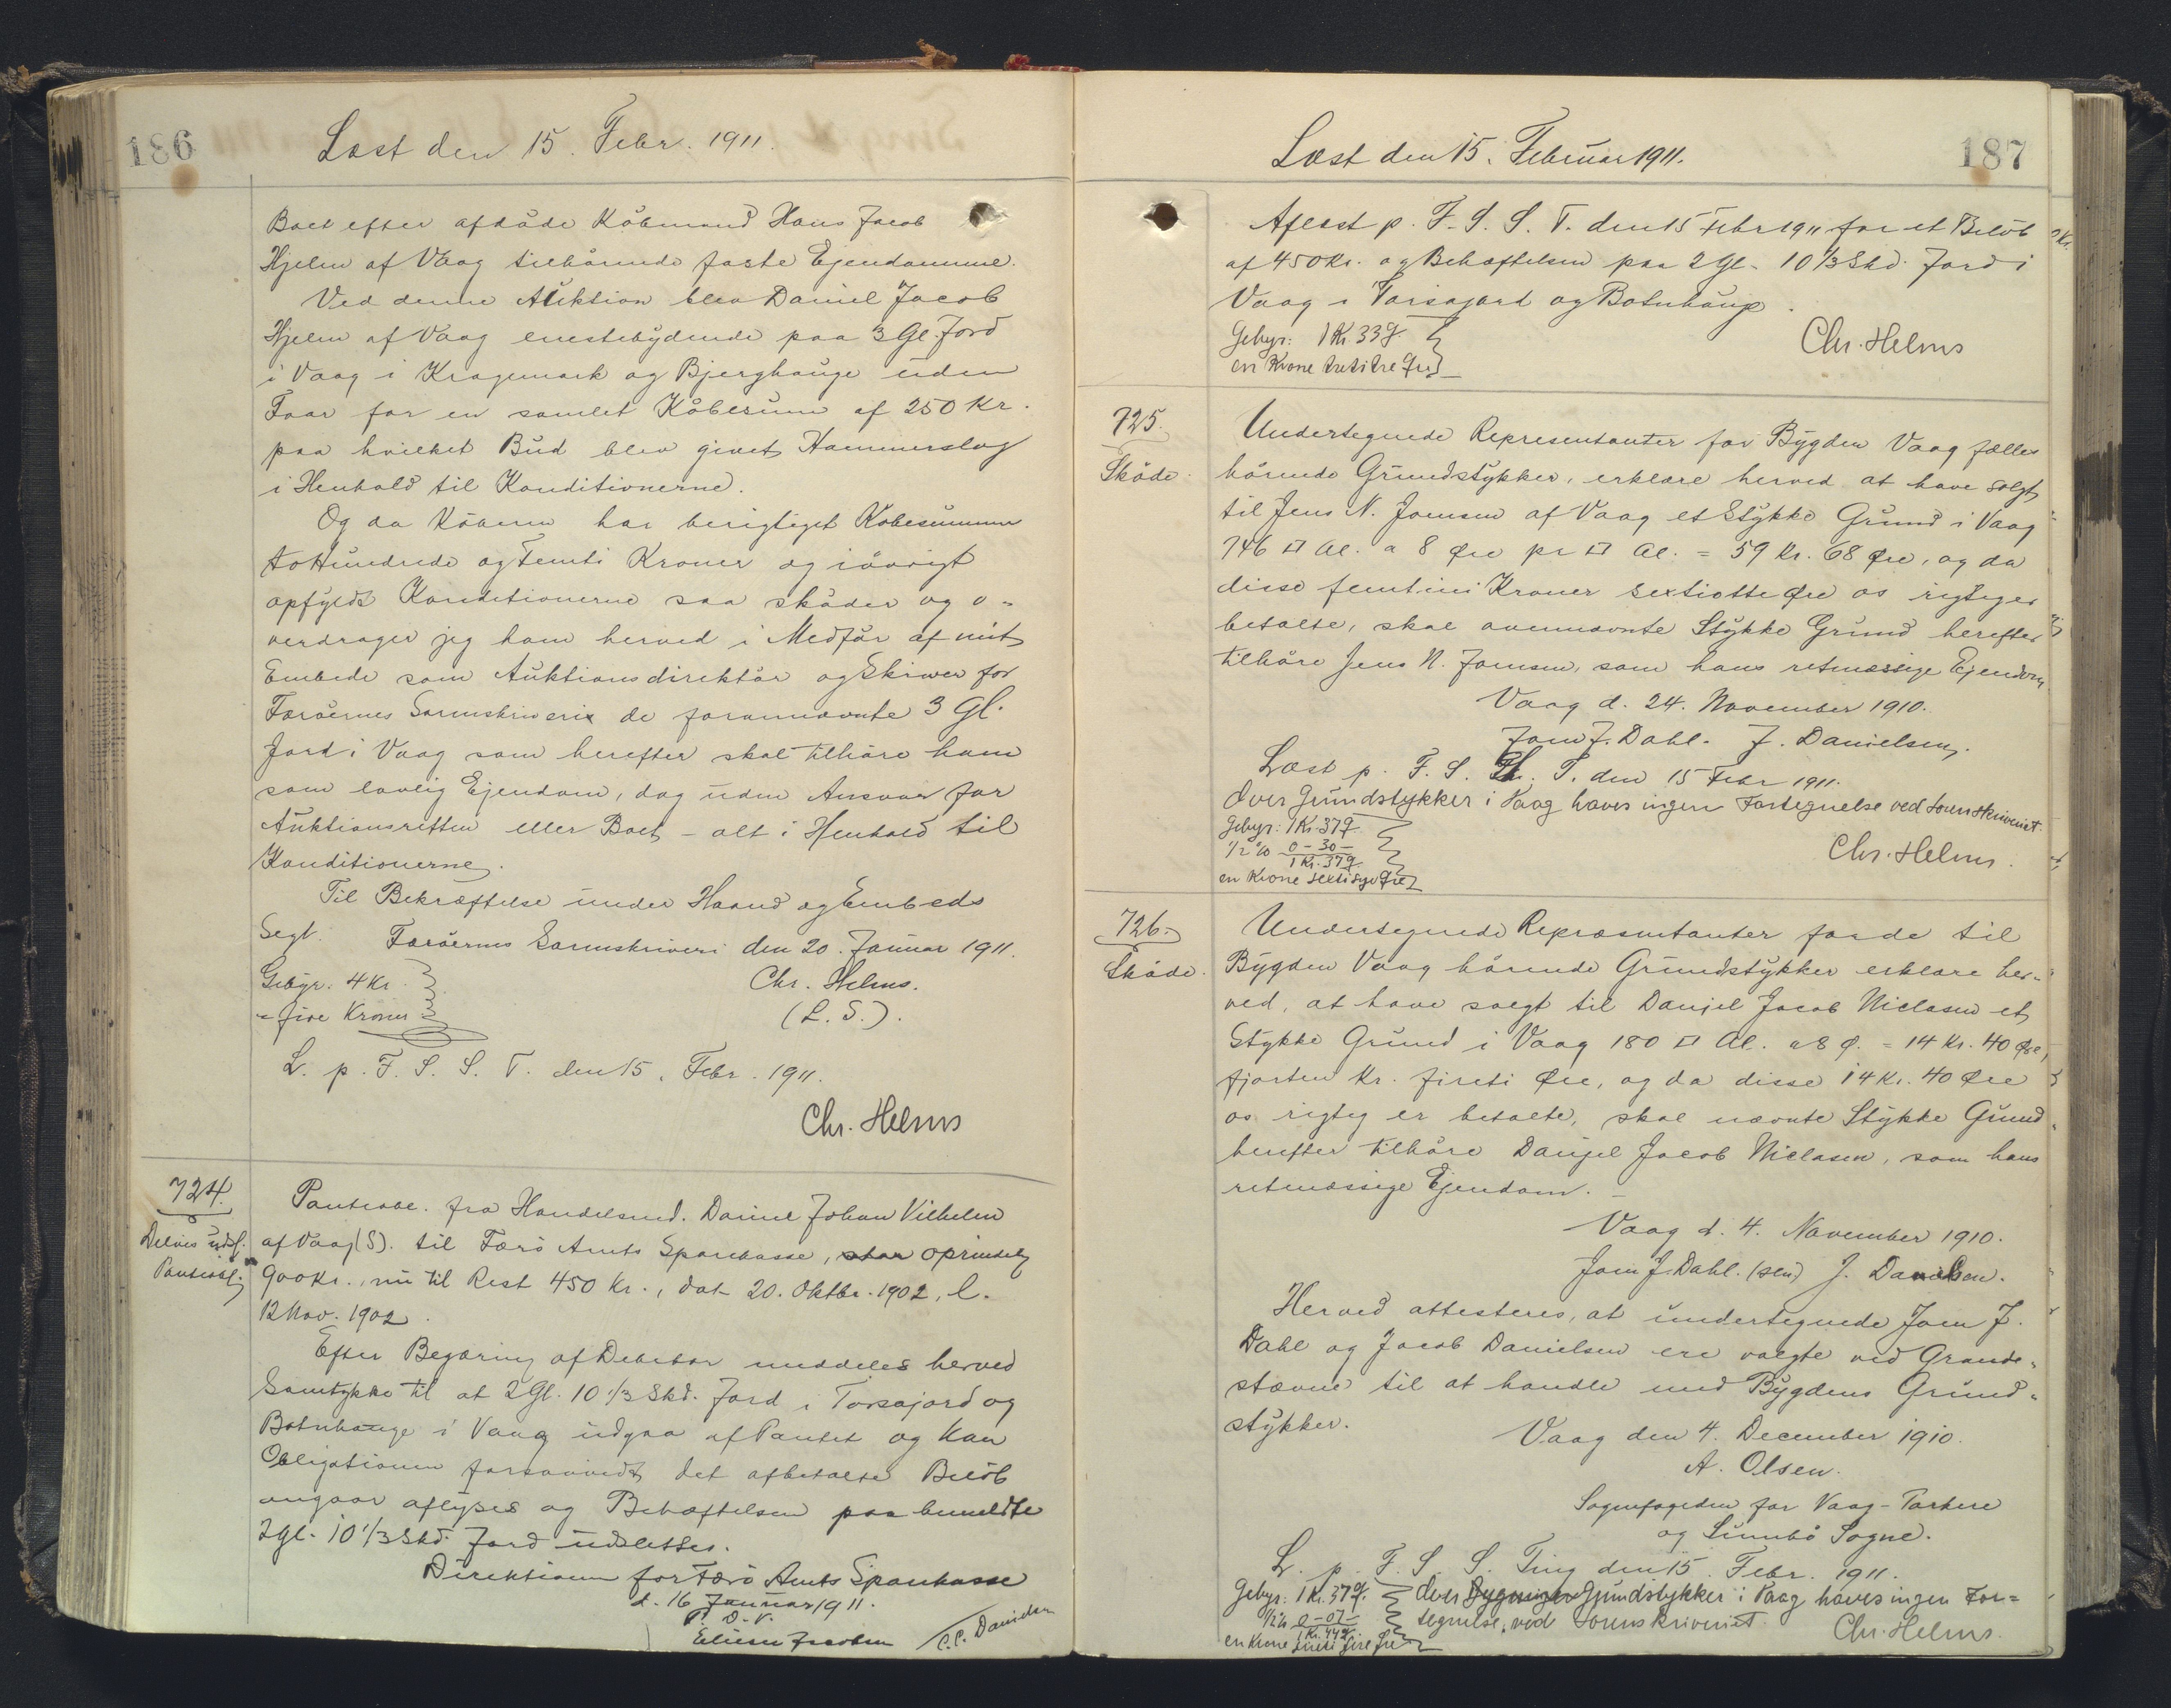 186
Læst den 15. Febr. 1911.
Boet efter afdøde Købmand Hans Jacob
Hjelm af Vaag tilhørende faste Ejendomme.
Ved denne Auktion blev Daniel Jacob
Hjelm af Vaag enestebydende paa 3 Gl. Jord
i Vaag i Kragemark og Bjerghauge uden
Faar for en samlet Købesum af 250 Kr.
paa hvilket Bud blev givet Hammerslag
i Henhold til Konditionerne.
Og da Køberen har berigtiget Købesummen
to Hundrede og Femti Kroner og iøvrigt
opfyldt Konditionerne saa skøder og o=
verdrager jeg ham herved i Medfør af mit
Embede som Auktionsdirektør og Skriver for
Færøernes Sorenskriveri de forannævnte 3 Gl.
Jord i Vaag som herefter skal tilhøre ham
som lovlig Ejendom, dog uden Ansvar for
Auktionsretten eller Boet - alt i Henhold til
Konditionerne.
Til Bekræftelse under Haand og Embeds
Segl.
Færøernes Sorenskriveri den 20. Januar 1911.
Gebyr. 4 Kr.
= fire Kroner
Chr. Helms.
(L. S.).
L. p. F. S. S. T. den 15. Febr. 1911.
Chr. Helms
724.
Delvis udsl.
Panteobl.
Panteobl. fra Handelsmd. Daniel Johan Vilhelm
af Vaag (S). til Færø Amts Sparekasse, stor oprindelig
900 Kr., nu til Rest 450 Kr., dat. 20. Oktbr. 1902, l.
12 Nov. 1902.
Efter Begæring af Debitor meddeles herved
Samtykke til at 2 Gl. 10 1/3 Skd. Jord i Torsajord og
Botnhauge i Vaag udgaa af Pantet og kan
Obligationen forsaavidt det afbetalte Beløb
angaar aflyses og Behæftelsen paa bemeldte
2 Gl. 10 1/3 Skd. Jord udslettes.
Direktionen for Færø Amts Sparekasse
d. 16 Januar 1911.
P. D. V.
Eliesar Jacobsen C. C. Danielsen
187
Læst den 15. Februar 1911.
Aflæst p. F. S. S. T. den 15 Febr 1911 for et Beløb
af 450 Kr. og Behæftelsen paa 2 Gl. 10 1/3 Skd. Jord i
Vaag i Torsajord og Botnhauge.
Gebyr: 1 Kr 33 Ø.
en Krone tretitre Øre
Chr. Helms
725.
Skøde.
Undertegnede Representanter for Bygden Vaag fælles
hørende Grundstykker, erklære herved at have solgt
til Jens N. Joensen af Vaag et Stykke Grund i Vaag
746 □ Al. a 8 Øre pr □ Al. = 59 Kr. 68 Øre, og da
disse femtini Kroner sextiotte Øre os rigtiger
betalte, skal ovennævnte Stykke Grund herefter
tilhøre Jens N. Joensen, som hans retmæssige Ejendom.
Vaag d. 24. November 1910.
Joen J. Dahl. J. Danielsen.
Læst p. F. S. S. T. den 15 Febr 1911.
Over Grundstykker i Vaag haves ingen Fortegnelse ved Sorenskriveriet.
Gebyr: 1 Kr. 37 Ø
1/2 % 0 - 30 -
1 Kr. 37 Ø.
en Krone sextisyv Øre
Chr. Helms.
726.
Skøde.
Undertegnede Repræsentanter for de til
Bygden Vaag hørende Grundstykker erklære her=
ved, at have solgt til Danjel Jacob Niclasen et
Stykke Grund i Vaag 180 □ Al. a 8 Ø. = 14 Kr. 40 Øre,
fjorten Kr. fireti Øre, og da disse 14 Kr. 40 Øre
os rigtig er betalte, skal nævnte Stykke Grund
herefter tilhøre Danjel Jacob Niclasen, som hans
retmæssige Ejendom. -
Vaag d. 4. November 1910.
Joen J. Dahl. (sen) J. Danielsen.
Herved attesteres, at undertegnede Joen J.
Dahl og Jacob Danielsen ere valgte ved Grande=
stævne til at handle med Bygdens Grund=
stykker.
Vaag den 4. December 1910.
A. Olsen.
Sognefogeden for Vaag - Porkere
og Sumbø Sogne.
L. p. F. S. S. Ting den 15. Febr. 1911.
Gebyr: 1 Kr. 37 Ø.
1/2 % 0 - 07 -
1 Kr. 44 Ø.
en Krone fireti fire Øre
Over Grundstykker i Vaag haves ingen For=
tegnelse ved Sorenskriveriet
Chr. Helms.